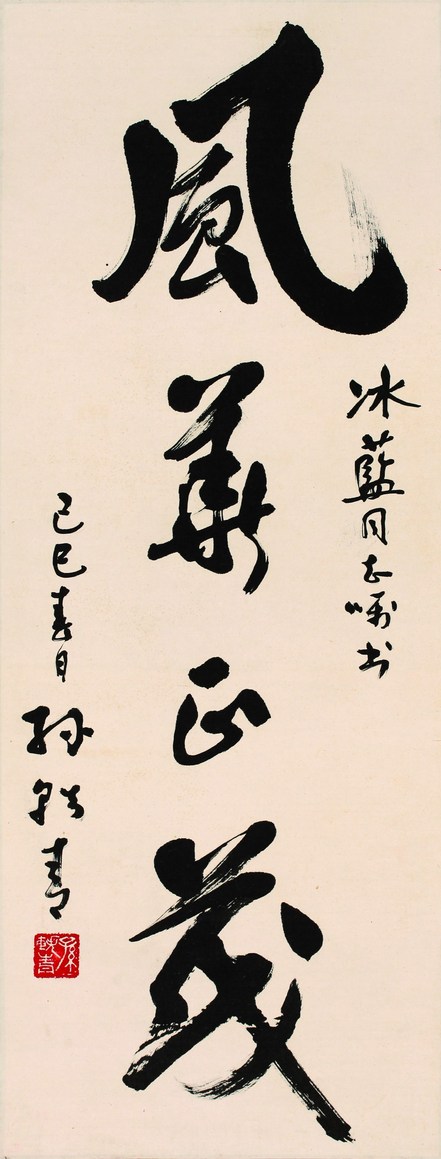 冰藍同志嘱书
風華正茂
己巳春日
孫軼青
孫軼青